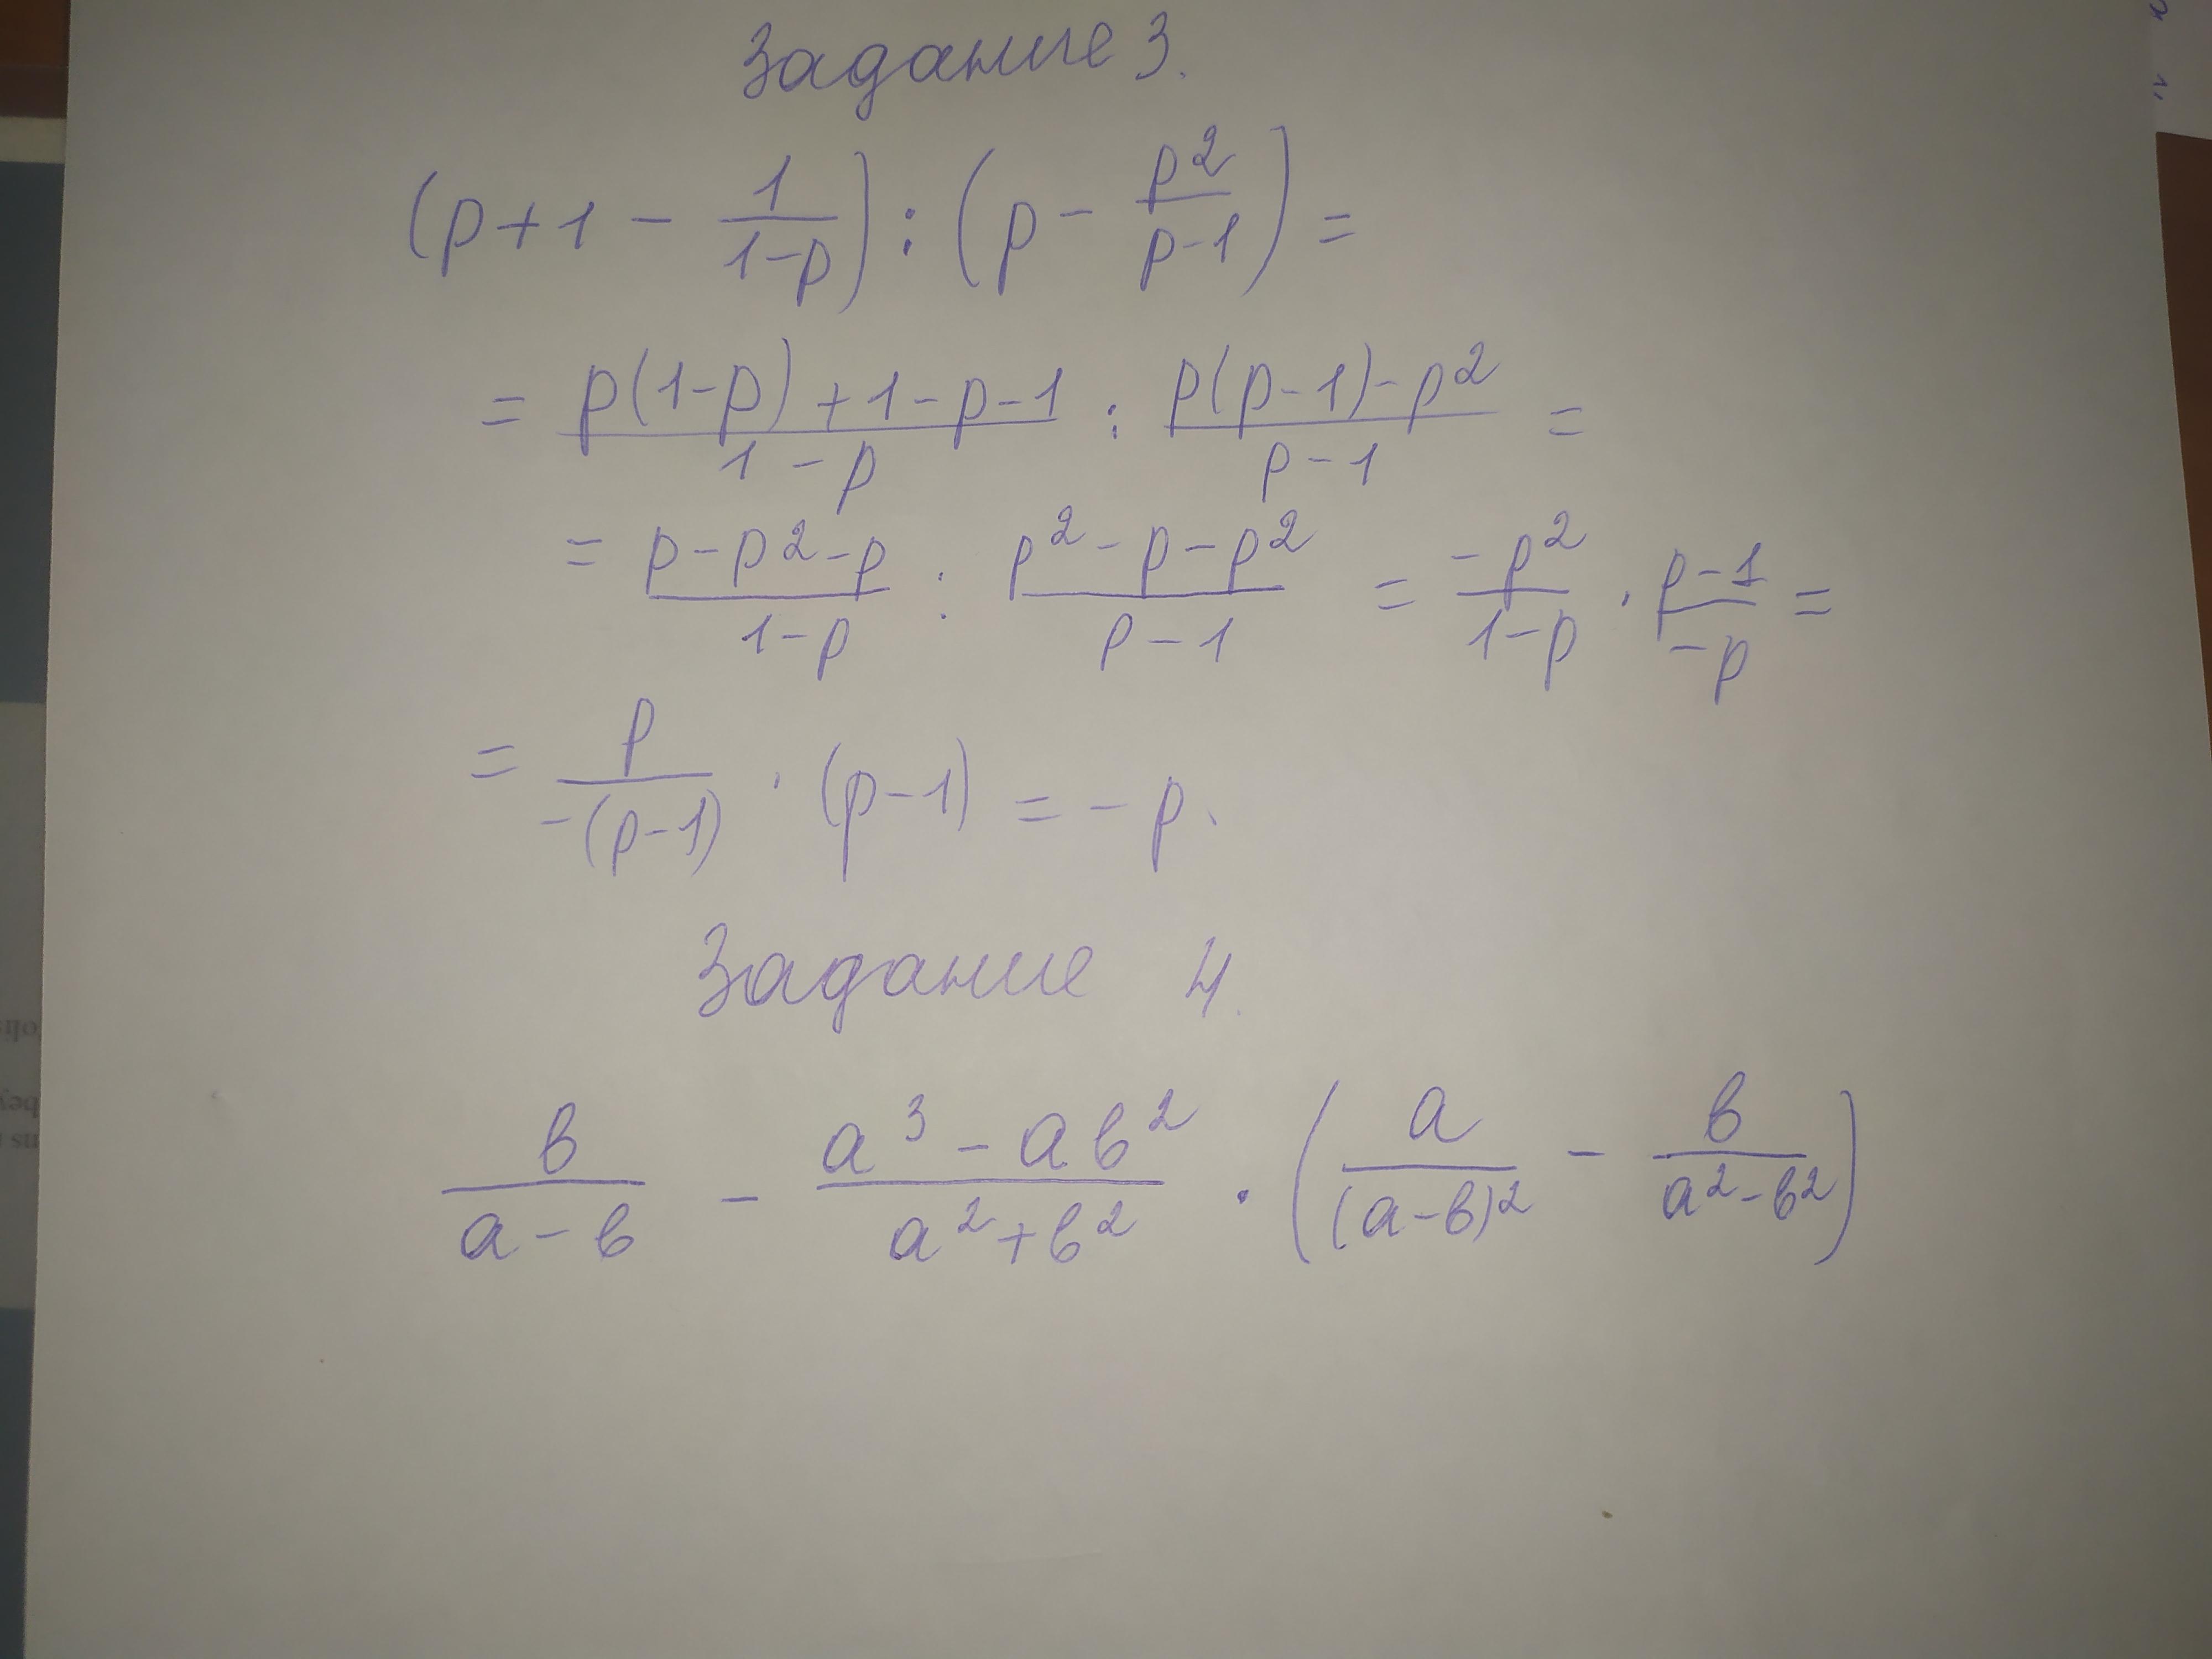 Задание 3.
(p+1 - \frac{1}{1-p}) : (p - \frac{p^2}{p-1}) =
= \frac{p(1-p)+1-p-1}{1-p} : \frac{p(p-1)-p^2}{p-1} =
= \frac{p-p^2-p}{1-p} : \frac{p^2-p-p^2}{p-1} = \frac{-p^2}{1-p} · \frac{p-1}{-p} =
= \frac{p}{-(p-1)} · (p-1) = -p.
Задание 4.
\frac{в}{а-в} - \frac{а^3-ав^2}{а^2+в^2} · (\frac{а}{(а-в)^2} - \frac{в}{а^2-в^2})